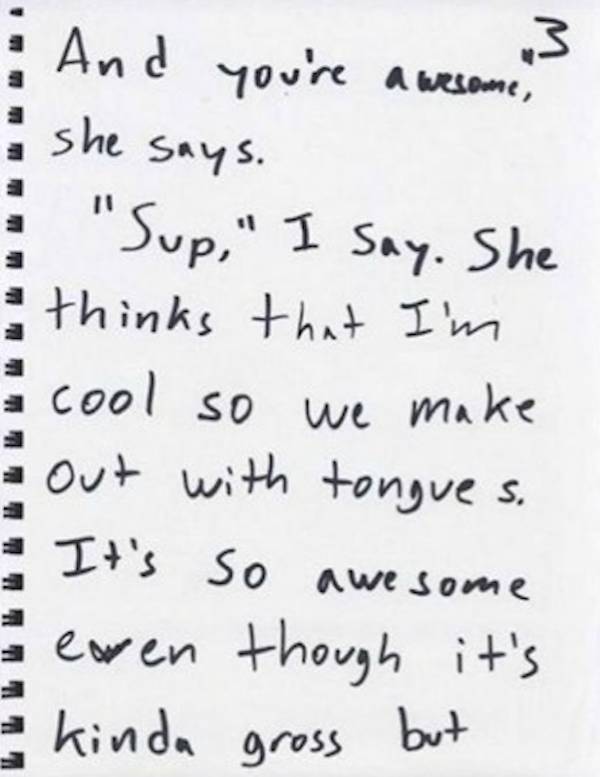 And you're awesome," 3
she says.
"Sup," I say. She
thinks that I'm
cool so we make
out with tongues.
It's so awesome
even though it's
kinda gross but